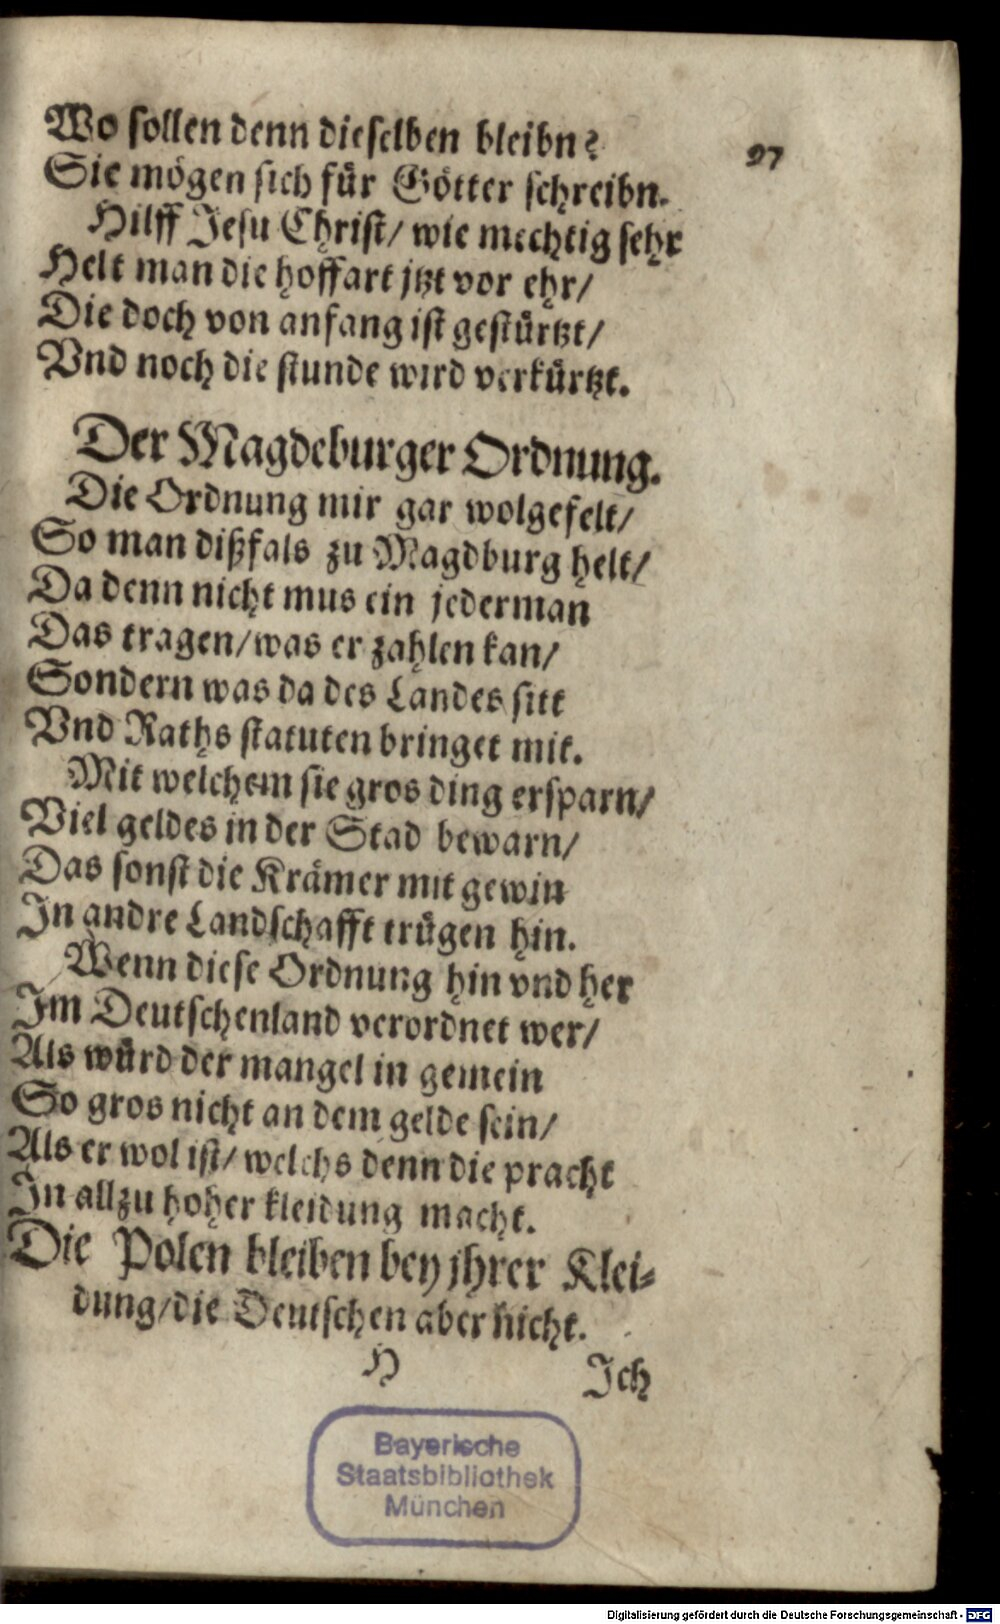 Wo sollen denn dieselben bleibn?
97
Sie mögen sich für Götter schreibn.
Hilff Jesu Christ/ wie mechtig sehr
Helt man die hoffart jtzt vor ehr/
Die doch von anfang ist gestürtzt/
Vnd noch die stunde wird verkürtzt.
Der Magdeburger Ordnung.
Die Ordnung mir gar wolgefelt/
So man dißfals zu Magdburg helt/
Da denn nicht mus ein jederman
Das tragen/was er zahlen kan/
Sondern was da des Landes sitt
Vnd Raths statuten bringet mit.
Mit welchem sie gros ding ersparn/
Viel geldes in der Stad bewarn/
Das sonst die Krämer mit gewin
In andre Landschafft trügen hin.
Wenn diese Ordnung hin vnd her
Im Deutschenland verordnet wer/
Als würd der mangel in gemein
So gros nicht an dem gelde sein/
Als er wol ist/ welchs denn die pracht
In allzu hoher kleidung macht.
Die Polen bleiben bey jhrer Klei-
dung/die Deutschen aber nicht.
H
Ich
Bayerische
Staatsbibliothek
München
Digitalisierung gefördert durch die Deutsche Forschungsgemeinschaft - DFG